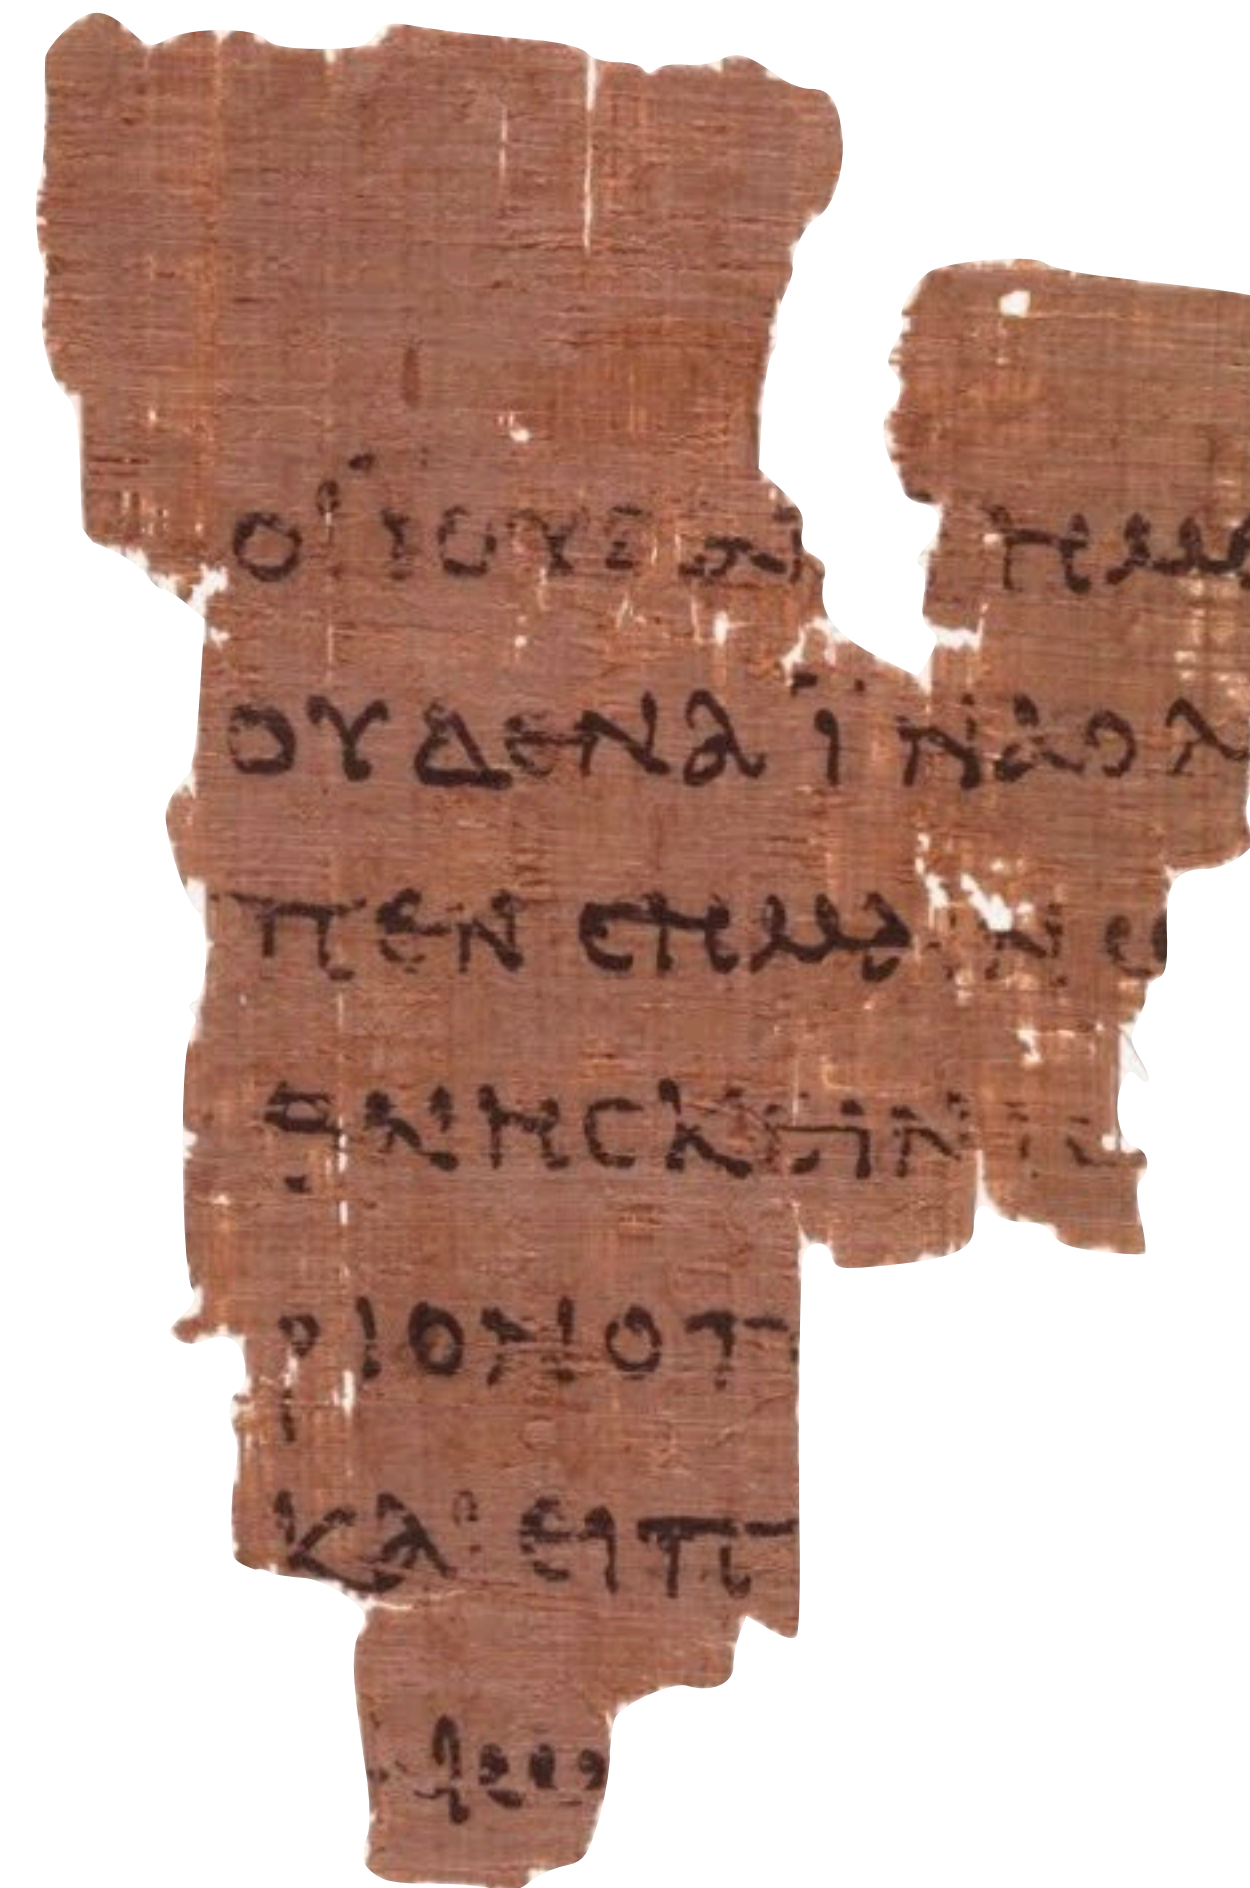 ΟΙ ΙΟΥΔΑΙ ΗΜ
ΟΥΔΕΝΑ ΪΝΑ Ο Λ
ΠΕΝ CΗΜΑΙΝω
ΘΝΗCΚΕΙΝ
ΡΙΟΝ Ο Π
ΚΑΙ ΕΙΠ